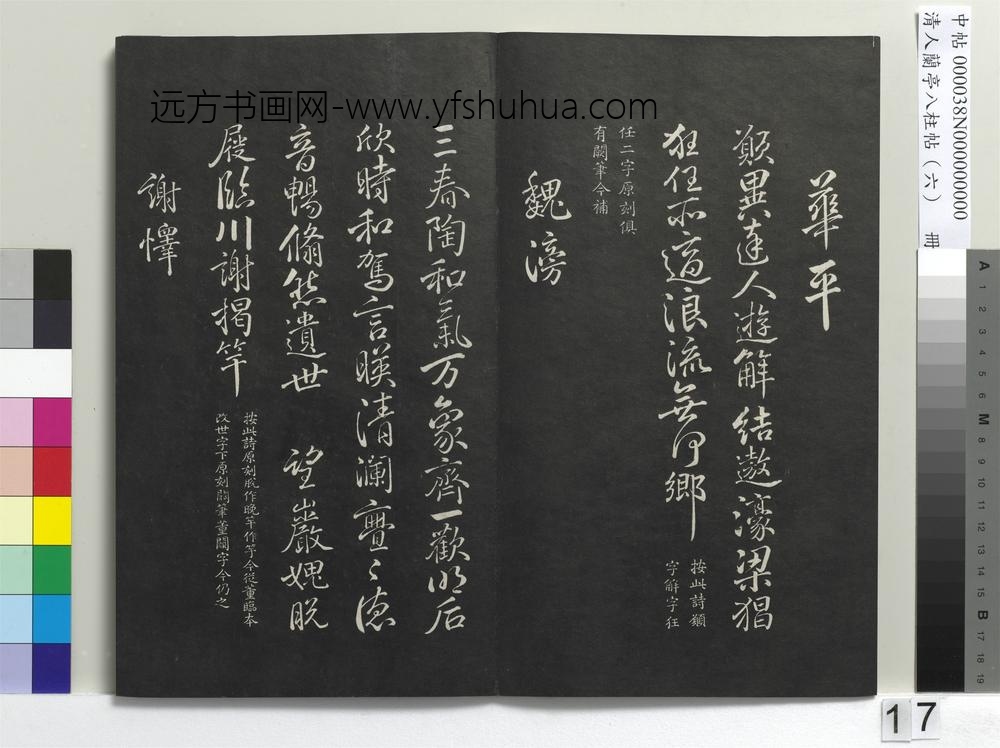 華平
願異達人遊解結遨濠梁猖
狂任所適浪流無何鄉
按此詩願
字解字任
任二字原刻俱
有闕筆今補
魏滂
三春陶和氣万象齊一歡明后
欣時和駕言暎清瀾亹〻德
音暢翛然遺世 望巖媿脫
屣臨川謝揭竿
按此詩原刻脫作晚竿作等今從董臨本
改世字下原刻闕筆董闕字今仍之
謝懌
远方书画网-www.yfshuhua.com
中帖 000038N000000000
清人蘭亭八柱帖(六) 冊
A 1 2 3 4 5 6 M 8 9 10 11 12 13 14 15 B 17 18 19
17